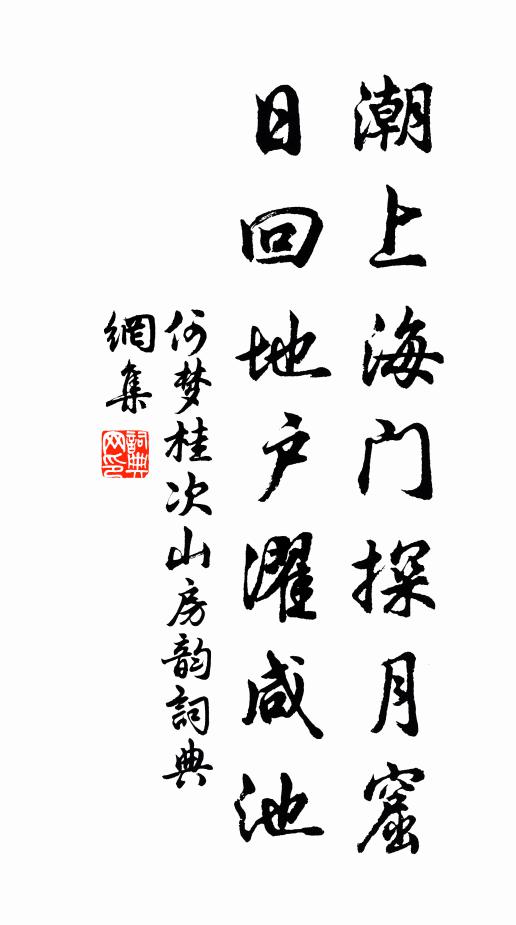 潮上海门探月窟
日回地户濯咸池
何梦桂次山房韵詞典
網集
詞典网印